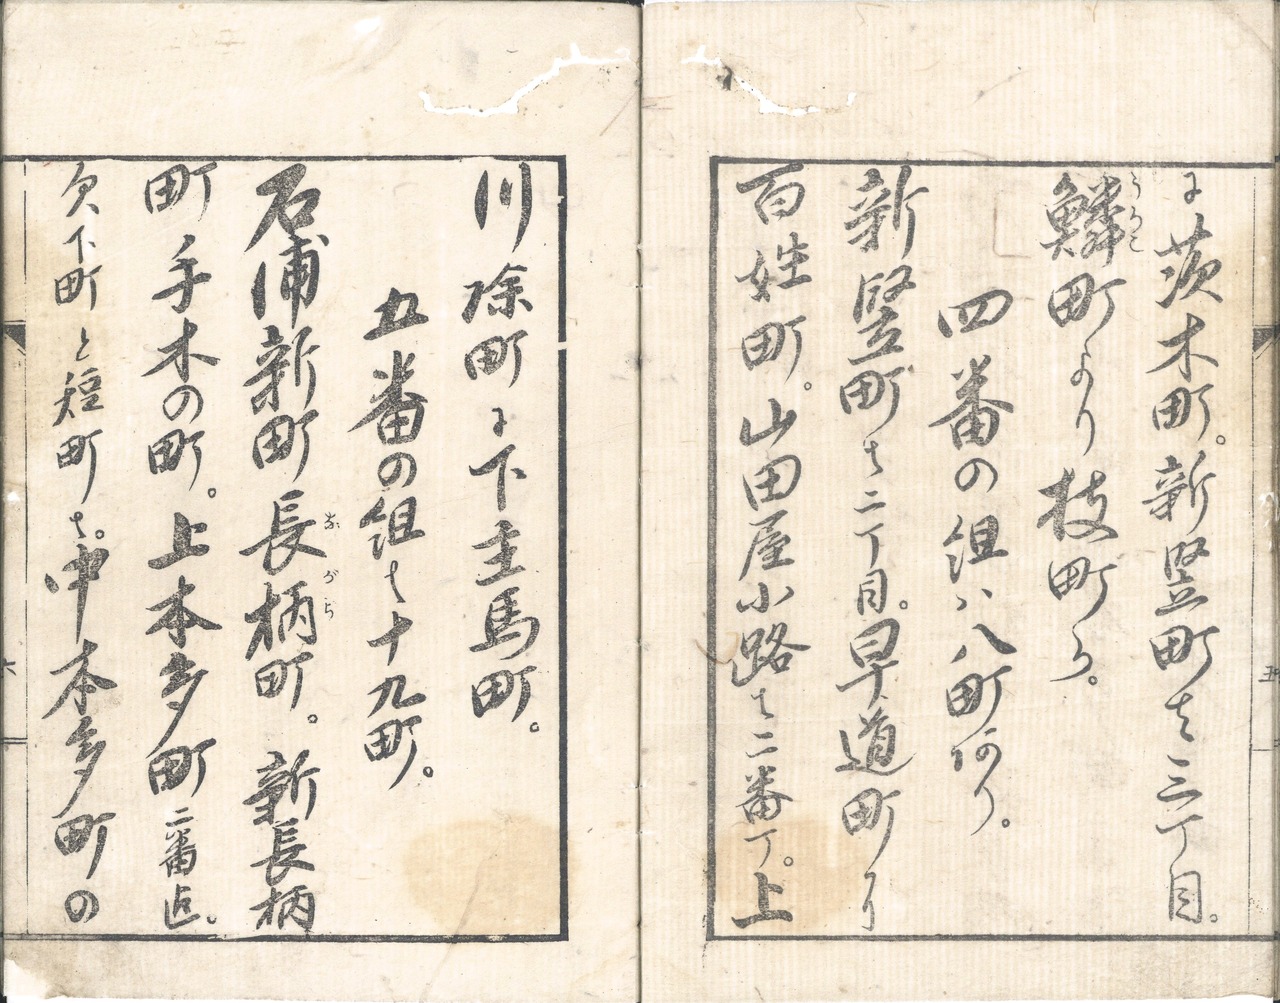 に茨木町。新竪町は三丁目。
鱗町より枝町る。
四番の組ハ八町あり。
新竪町は二丁目。早道町より
百姓町。山田屋小路は二番丁。上
川除町に下主馬町。
五番の組は十九町。
石浦新町長柄町。新長柄
町手木の町。上本多町二番迄。
欠下町と短町は。中本多町の